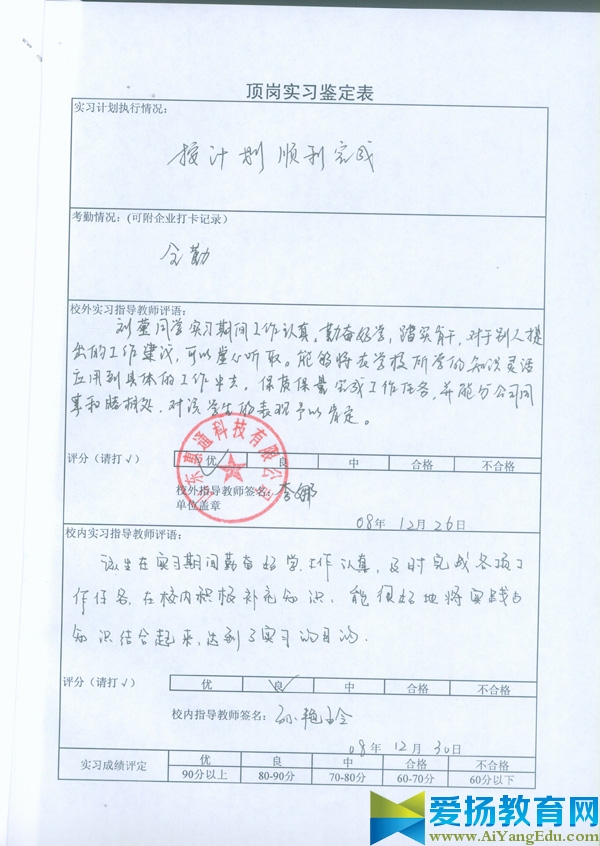 顶岗实习鉴定表
实习计划执行情况：
按计划顺利完成
考勤情况：(可附企业打卡记录)
全勤
校外实习指导教师评语：
同学实习期间工作认真。勤奋好学，踏实肯干，对于别人提
出的工作建议，可以虚心听取。能够将在学校所学的知识灵活
应用到具体的工作中去，保质保量完成工作任务，并能与公司同
事和睦相处，对该学生的表现予以肯定。
评分（请打√） 优 良 中 合格 不合格
东惠通科技有限公司
校外指导教师签名：李娜
单位盖章
08年12月26日
校内实习指导教师评语：
该生在实习期间勤奋好学，工作认真，及时完成各项工
作任务，在校内积极补充知识，能很好地将实践与
知识结合起来，达到了实习的目的。
评分（请打√） 优 良 中 合格 不合格
校内指导教师签名：孙艳玲
08年12月30日
实习成绩评定 优 良 中 合格 不合格
90分以上 80-90分 70-80分 60-70分 60分以下
爱扬教育网
www.AiYangEdu.com